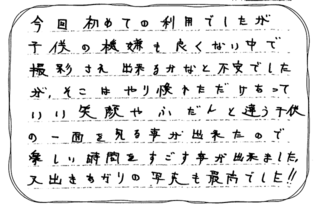 今回初めての利用でしたが
子供の機嫌も良くない中で
撮影さえ出来るかなと不安でした
が、そこはやり慣れただけあって
いい笑顔やふだんと違う子供
の一面を見る事が出来たので
楽しい時間をすごす事が出来ました。
又出きあがりの写真も最高でした!!